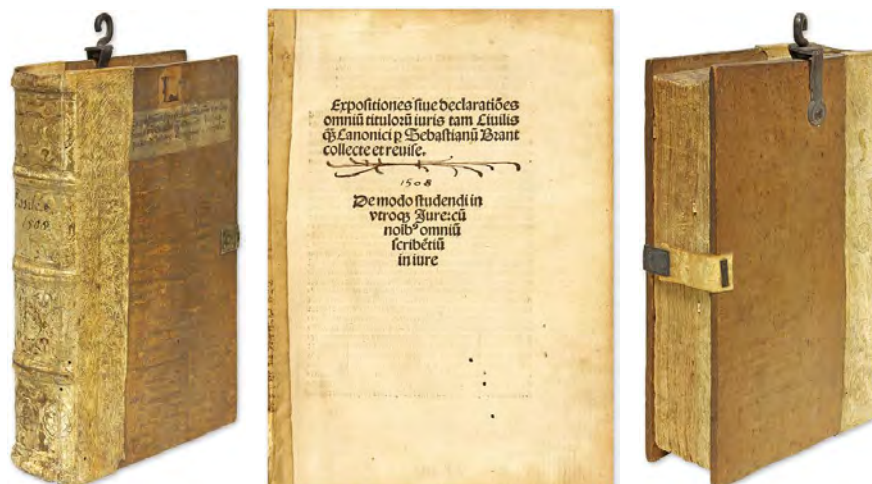 L
1508
Expositiones siue declaratiões
omniũ titulorũ iuris tam Ciuilis
q̃ȝ Canonici ꝑ Sebastianũ Brant
collecte et reuise.
1508
De modo studendi in
vtroqȝ Jure: cũ
noibꝰ omniũ
scribẽtiũ
in iure